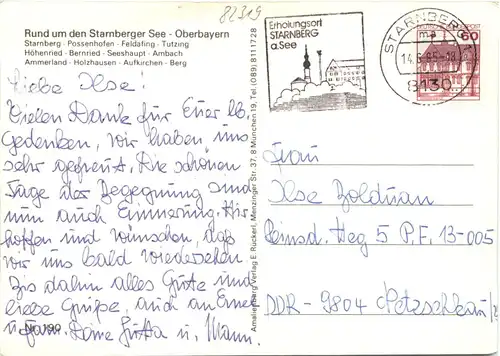 82319
Rund um den Starnberger See - Oberbayern
Starnberg · Possenhofen · Feldafing · Tutzing
Höhenried · Bernried · Seeshaupt · Ambach
Ammerland · Holzhausen · Aufkirchen · Berg
Liebe Ilse!
Vielen Dank für Euer lb.
Gedenken, wir haben uns
sehr gefreut. Die schönen
Tage der Begegnung sind
nun auch Erinnerung. Wir
hoffen und wünschen, daß
wir uns bald wiedersehen
Bis dahin alles Gute und
liebe Grüße, auch an
Deine Jutta u. Mann.
Erholungsort
STARNBERG
a. See
STARNBERG 1
ma
8130
60
Amalienburg Verlag E. Rückerl, Menzinger Str. 37, 8 München 19, Tel. (089) 8111728
Frau
Ilse Boldman
Heinsd. Weg 5 P.F. 13-005
DDR - 9804